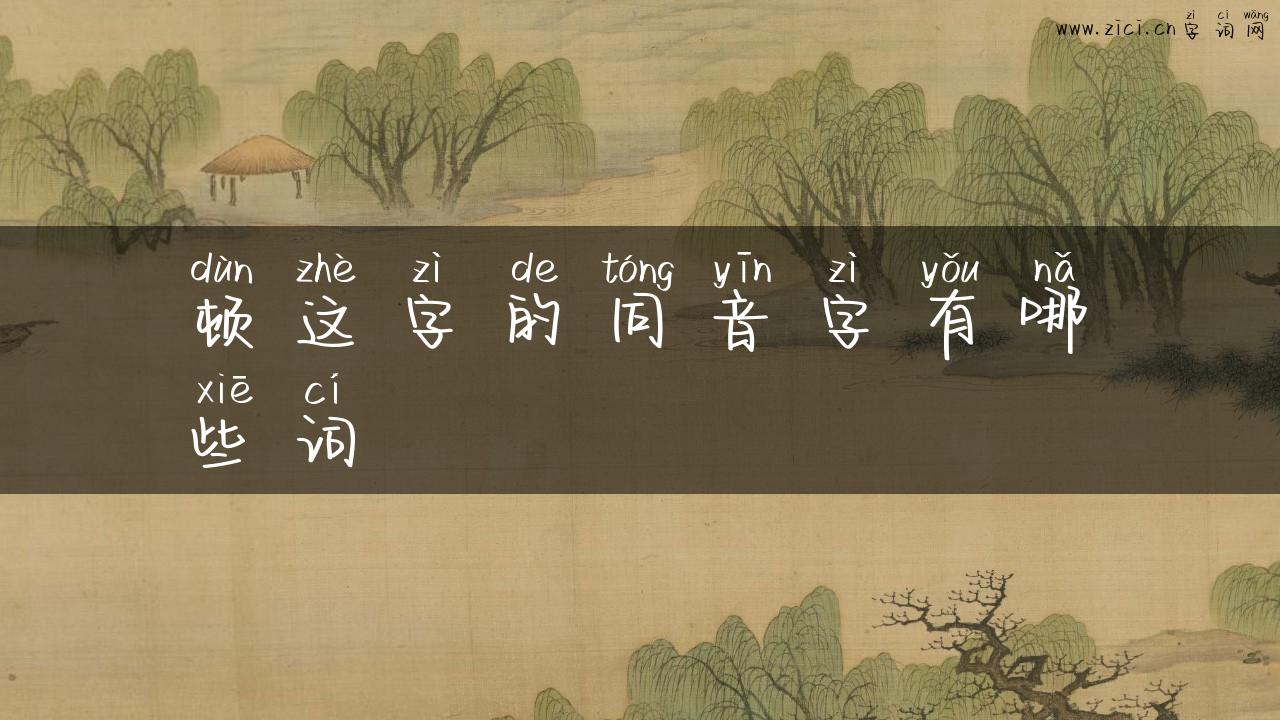 zì cí wǎng
www.zici.cn 字 词 网
dùn zhè zì de tóng yīn zì yǒu nǎ
顿 这 字 的 同 音 字 有 哪
xiē cí
些 词